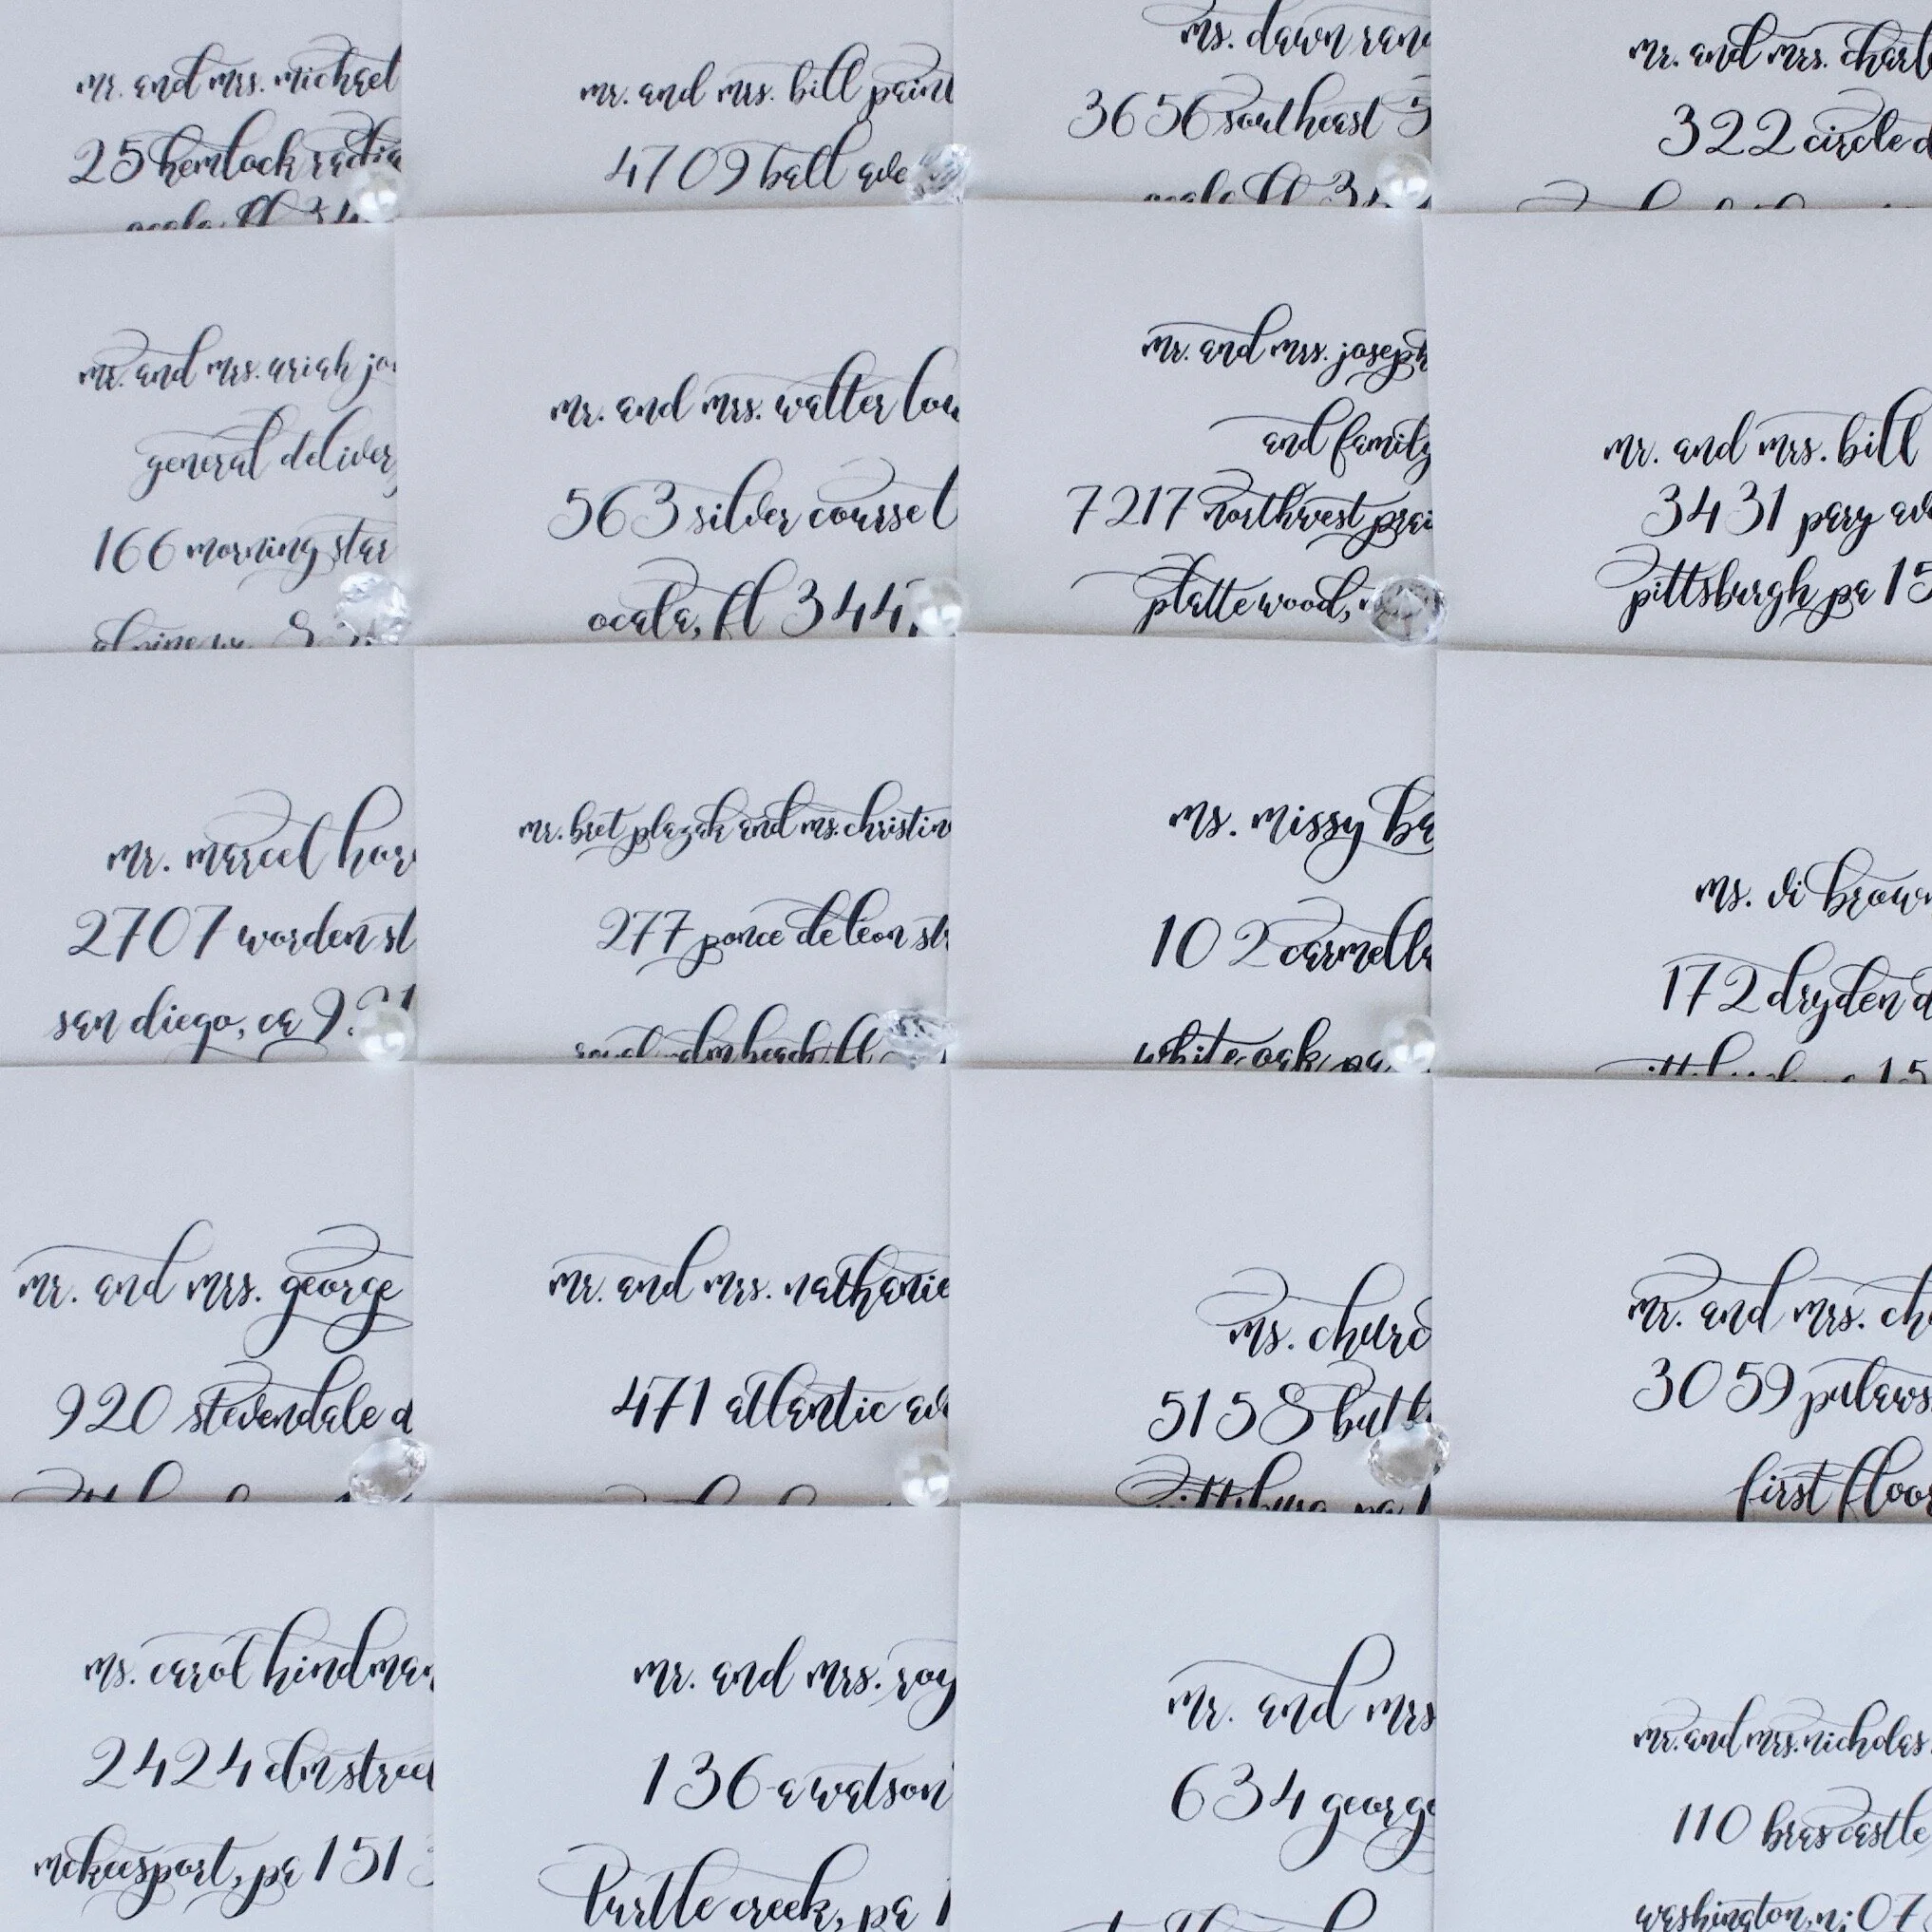 mr. and mrs. michael
25 hemlock radia
ocala, fl 34
mr. and mrs. bill paint
4709 ball ave
ms. dawn rand
3656 southeast 5
ocala fl 34
mr. and mrs. charl
322 circle d
mr. and mrs. uriah jo
general deliver
166 morning star
alpine wy 83
mr. and mrs. walter lou
563 silver course l
ocala, fl 344
mr. and mrs. joseph
and family
7217 northwest prai
platte wood,
mr. and mrs. bill
3431 pary ave
pittsburgh pa 15
mr. marcel hor
2707 worden st
san diego, ca 921
mr. bret plazak and ms. christin
277 ponce de leon str
royal palm beach, fl
ms. missy ba
102 carmella
white oak, pa
ms. vi brown
172 dryden d
15
mr. and mrs. george
920 stevendale d
mr. and mrs. nathanie
471 atlantic av
ms. churc
5158 butl
pittsburg, pa 1
mr. and mrs. cha
3059 pulaws
first floor
ms. carol hindman
2424 elm street
mckeesport, pa 151
mr. and mrs. roy
136-a watson
turtle creek, pa 1
mr. and mrs
634 george
mr. and mrs. nicholas
110 bras castle
washington, nj 07